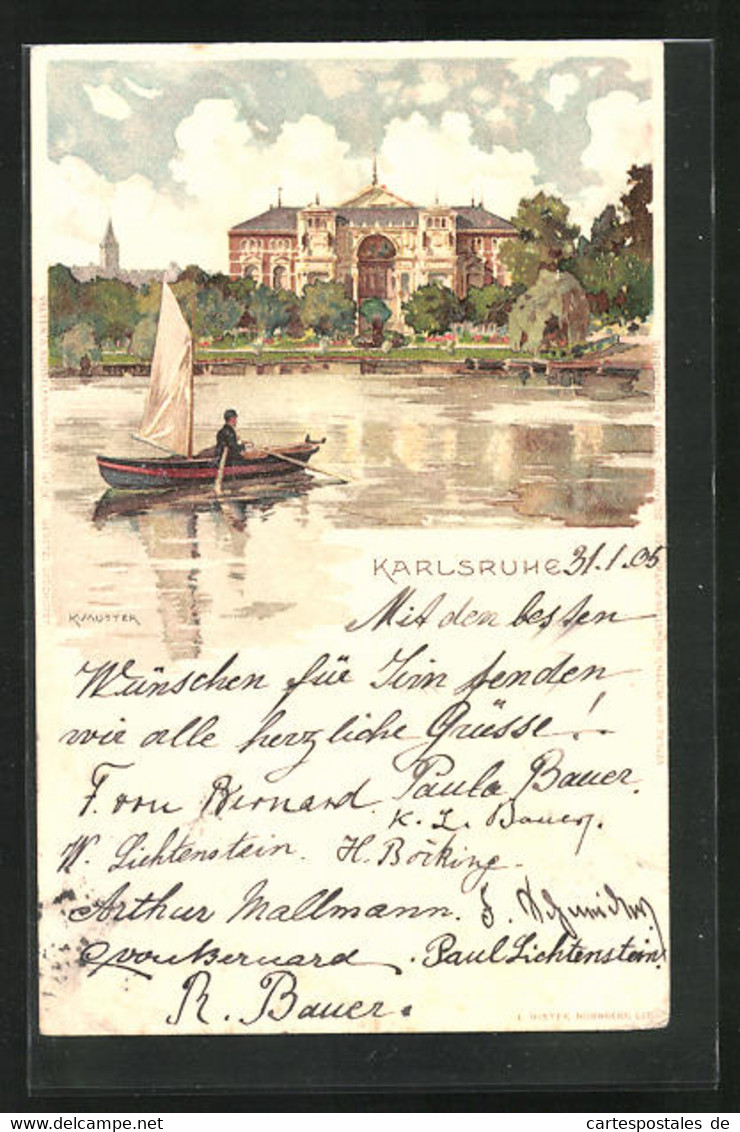 KARLSRUHE 31.1.05
K. MUTTER
Mit den besten
Wünschen für Sein senden
wir alle herzliche Grüsse!
F. von Bernard. Paula Bauer.
K. L. Bauer.
W. Lichtenstein. H. Böcking.
Arthur Mallmann. F. Schmider
von Bernard. Paul Lichtenstein.
R. Bauer.
E. NISTER NÜRNBERG LITH
www.delcampe.net
cartespostales de